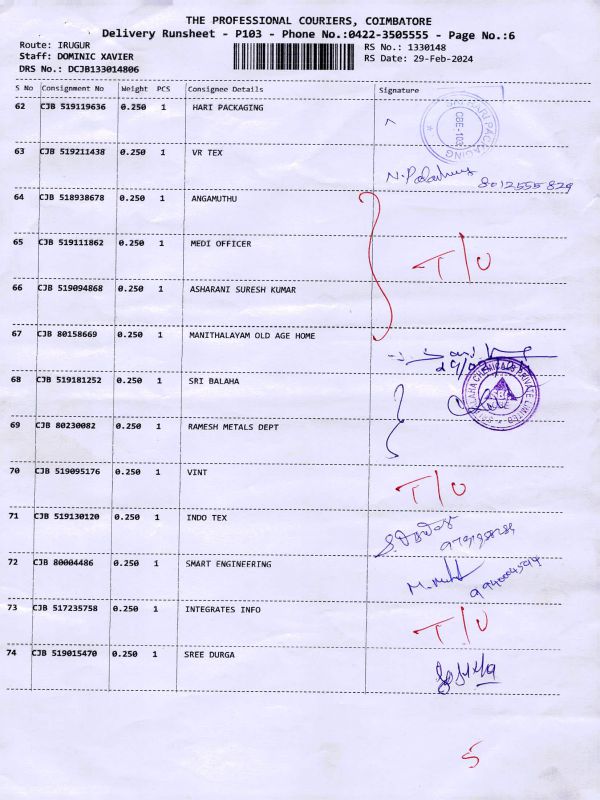 THE PROFESSIONAL COURIERS, COIMBATORE
Delivery Runsheet - P103 - Phone No.:0422-3505555 - Page No.:6
Route: IRUGUR
RS No.: 1330148
Staff: DOMINIC XAVIER
RS Date: 29-Feb-2024
DRS No.: DCJB133014806
S No Consignment No Weight PCS Consignee Details Signature
62 CJB 519119636 0.250 1 HARI PACKAGING
PACKAGING
CBE-103
63 CJB 519211438 0.250 1 VR TEX
8012555829
64 CJB 518938678 0.250 1 ANGAMUTHU
65 CJB 519111862 0.250 1 MEDI OFFICER
T/O
66 CJB 519094868 0.250 1 ASHARANI SURESH KUMAR
67 CJB 80158669 0.250 1 MANITHALAYAM OLD AGE HOME
68 CJB 519181252 0.250 1 SRI BALAHA
BALAHA CHEMICALS PRIVATE LIMITED
69 CJB 80230082 0.250 1 RAMESH METALS DEPT
70 CJB 519095176 0.250 1 VINT
T/O
71 CJB 519130120 0.250 1 INDO TEX
72 CJB 80004486 0.250 1 SMART ENGINEERING
73 CJB 517235758 0.250 1 INTEGRATES INFO
T/O
74 CJB 519015470 0.250 1 SREE DURGA
5